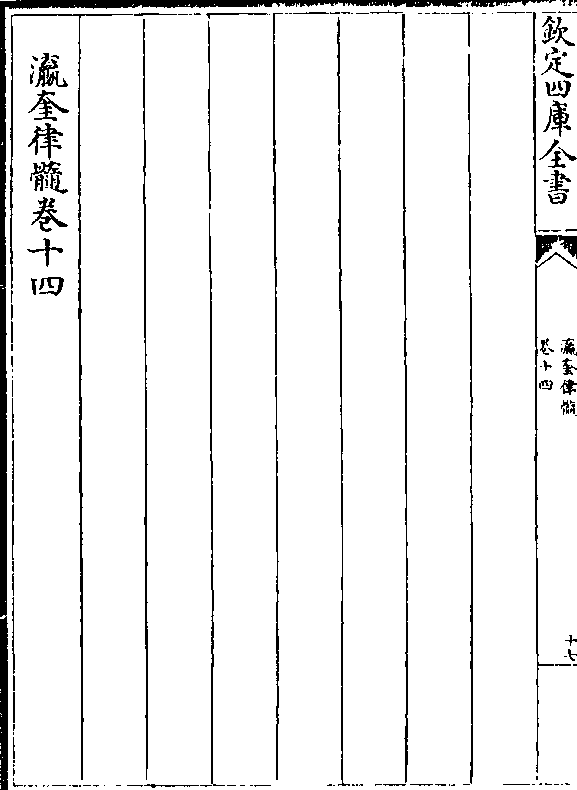 欽定四庫全書
瀛奎律髓
卷十四
十七
瀛奎律髓卷十四